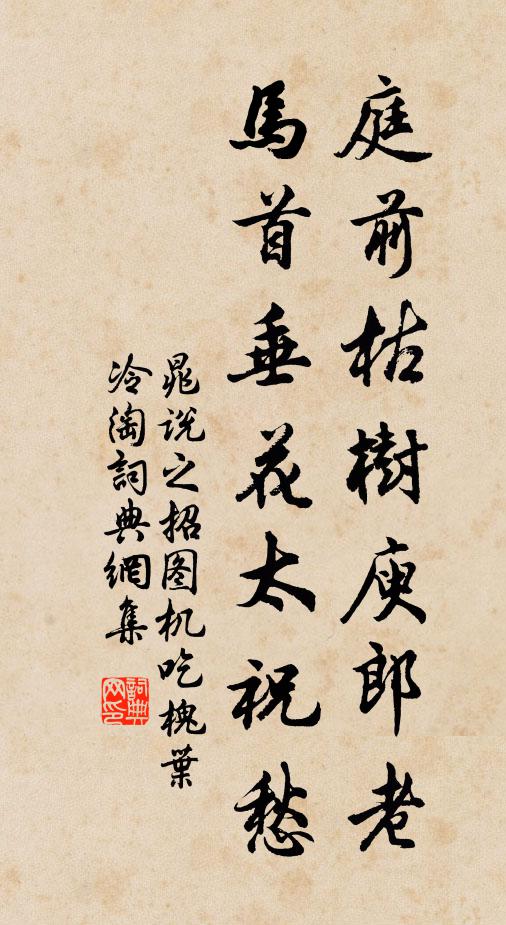 庭前枯樹庾郎老
馬首垂花太祝愁
晁说之招图机吃槐葉
冷淘詞典網集
詞典网印